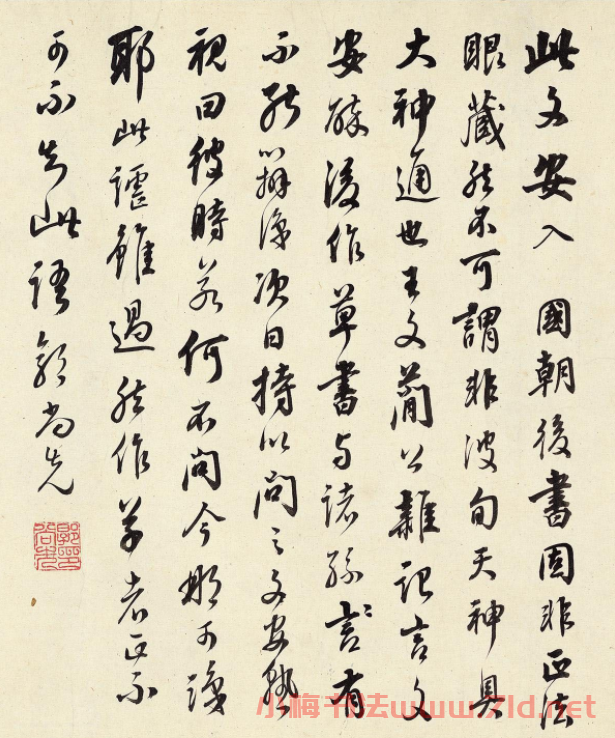 此文安入 國朝後書固非正法
眼藏然不可謂非波旬天神具
大神通也王文簡公雜記言文
安醉後作草書与諸孫言言有
不能辨識次日持以问之文安熟
視曰彼時若何不问今那可識
耶此謔雖過然作草者正不
可不知此語郭尚先
郭尚先印
小梅书法www.7ld.net